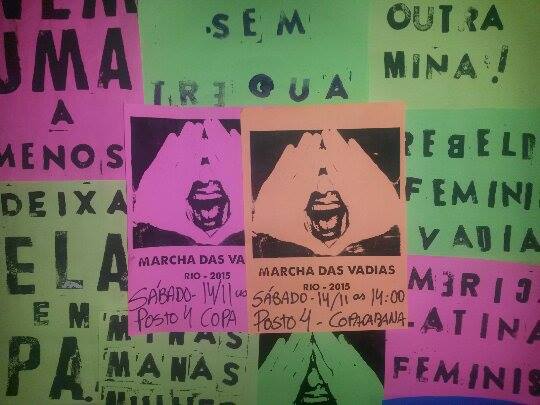 UMA
A
MENOS
SEM
TREGUA
OUTRA
MINA!
DEIXA
ELA
EM
PA.
MARCHA DAS VA
RIO - 2015
SÁBADO - 14/11 as
POSTO 4 COPA
MARCHA DAS VADIAS
RIO - 2015
SÁBADO - 14/11 as 14:00
POSTO 4 - COPACABANA
MINAS
MANAS
REBELD
FEMINIS
VADIA
MERICA
LATINA
FEMINIS